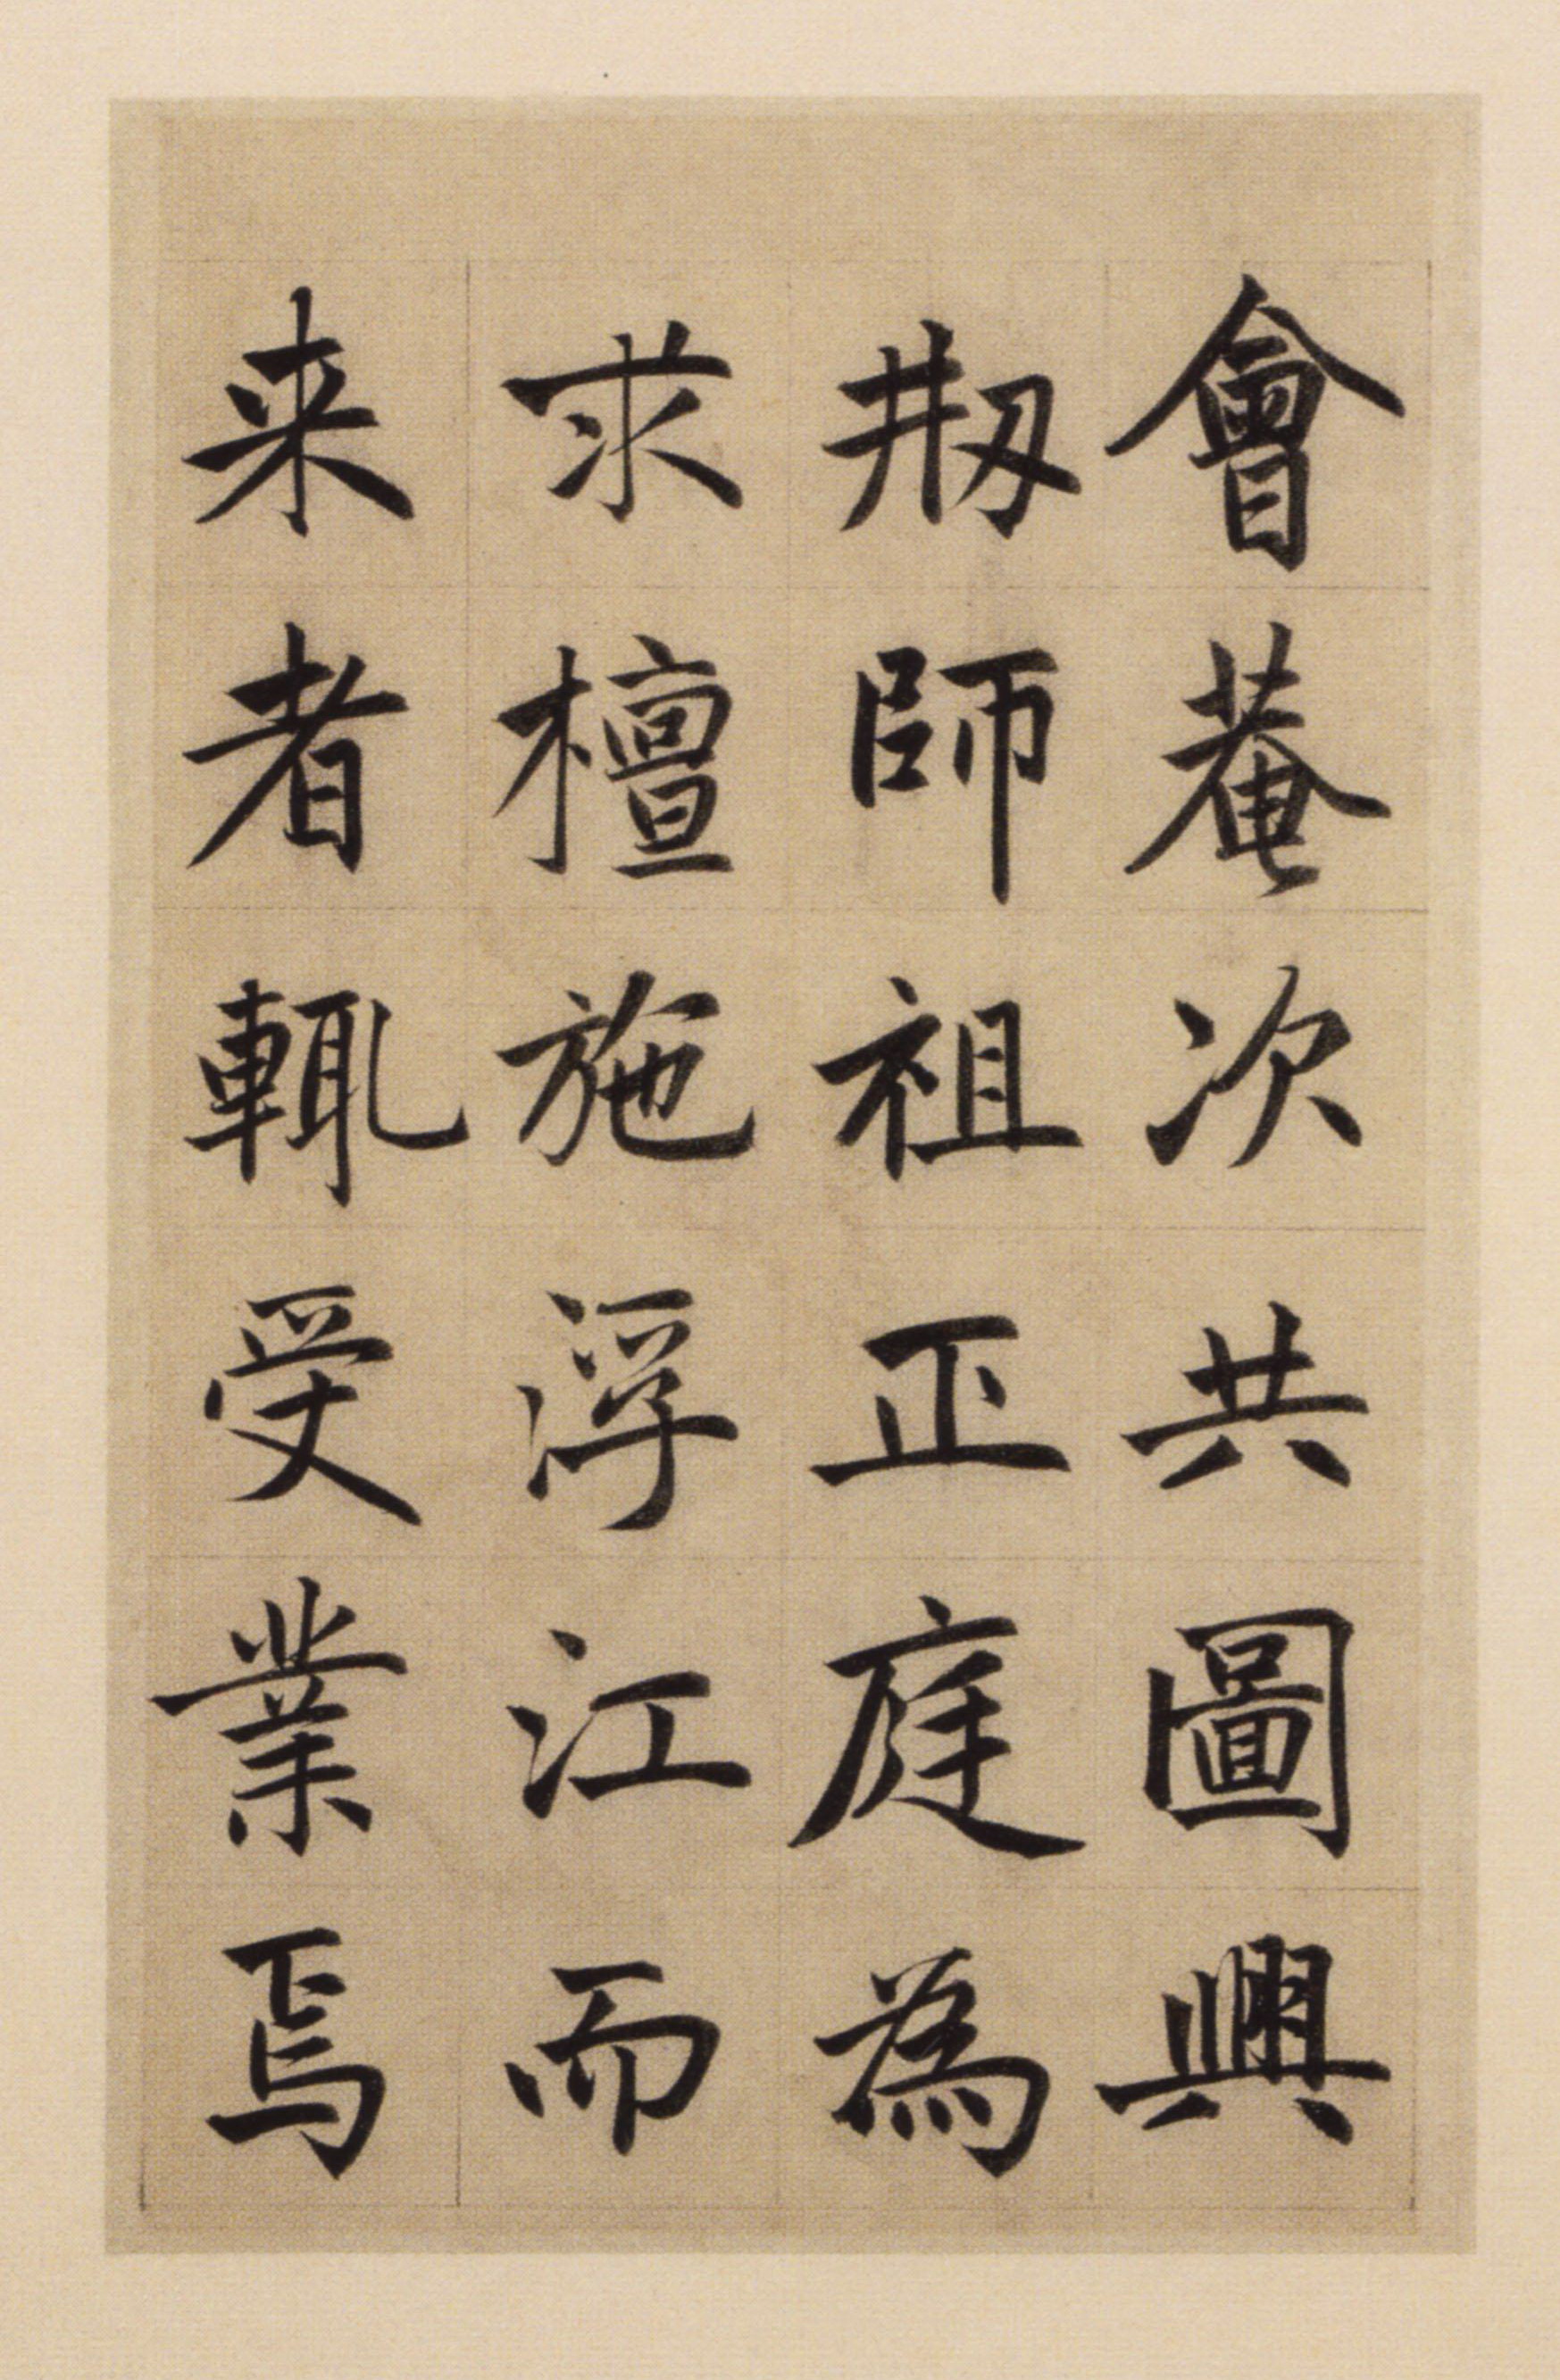 會菴次共圖興
刱師祖正庭為
求檀施浮江而
来者輙受業焉